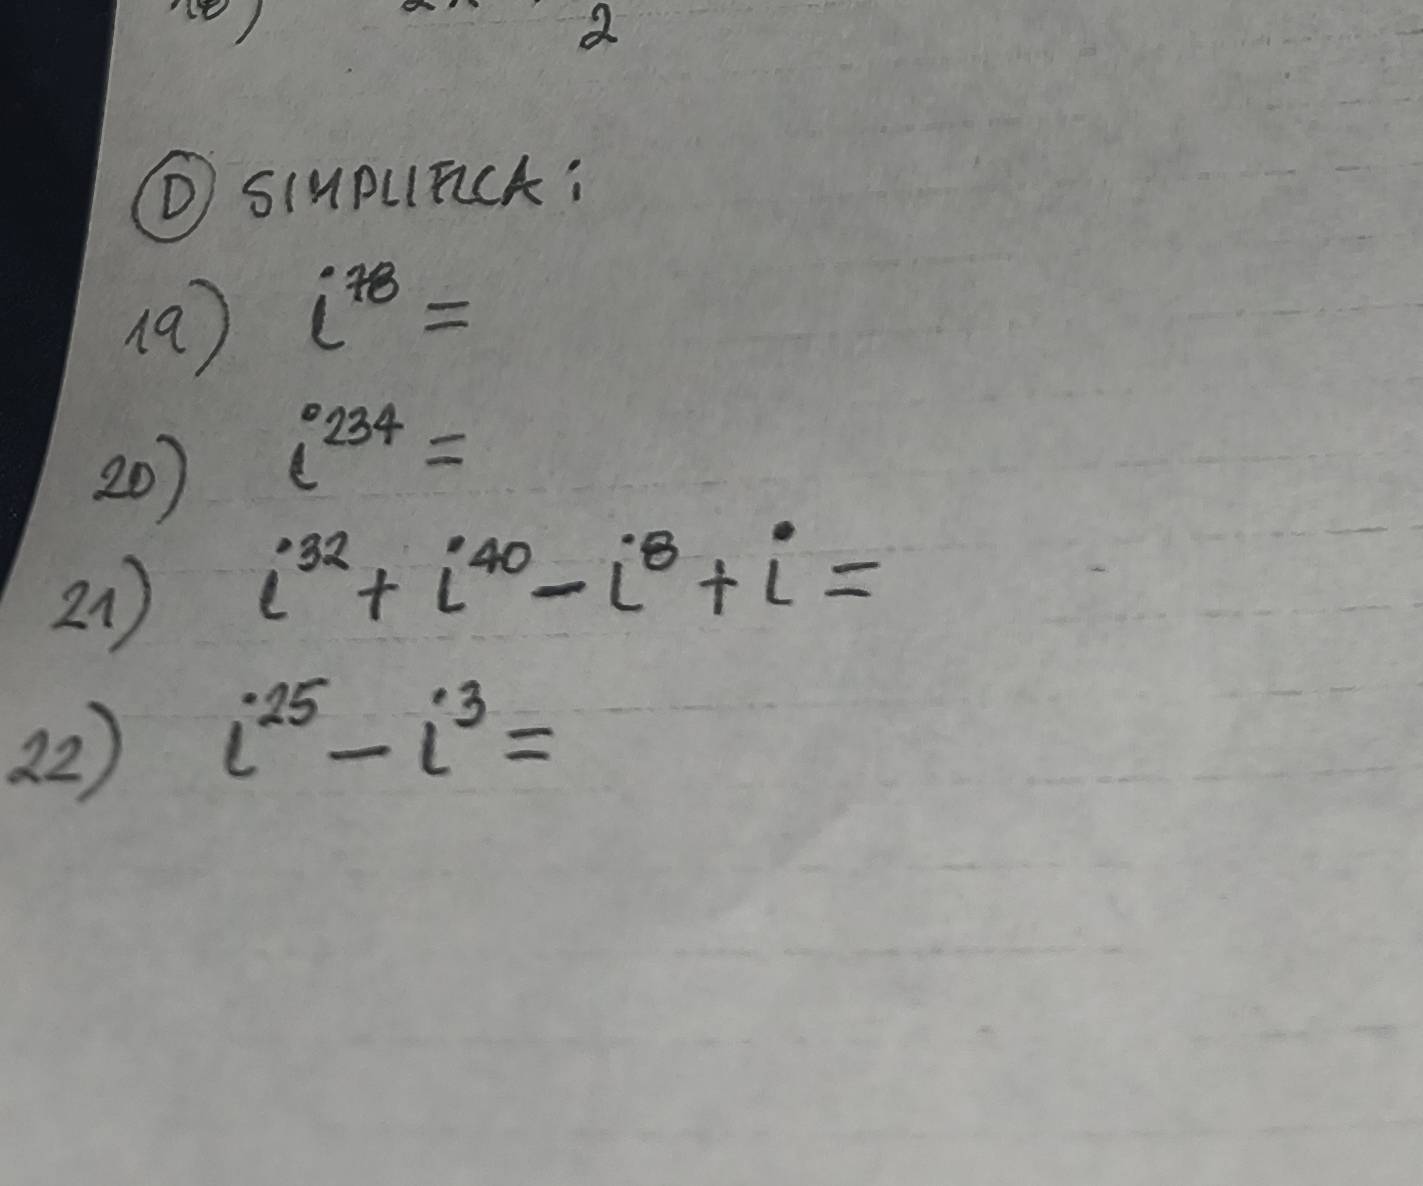 2
Ⓓ SIMPLIFICA:
19) i⁷⁸ =
20) i²³⁴ =
21) i³² + i⁴⁰ - i⁸ + i =
22) i²⁵ - i³ =